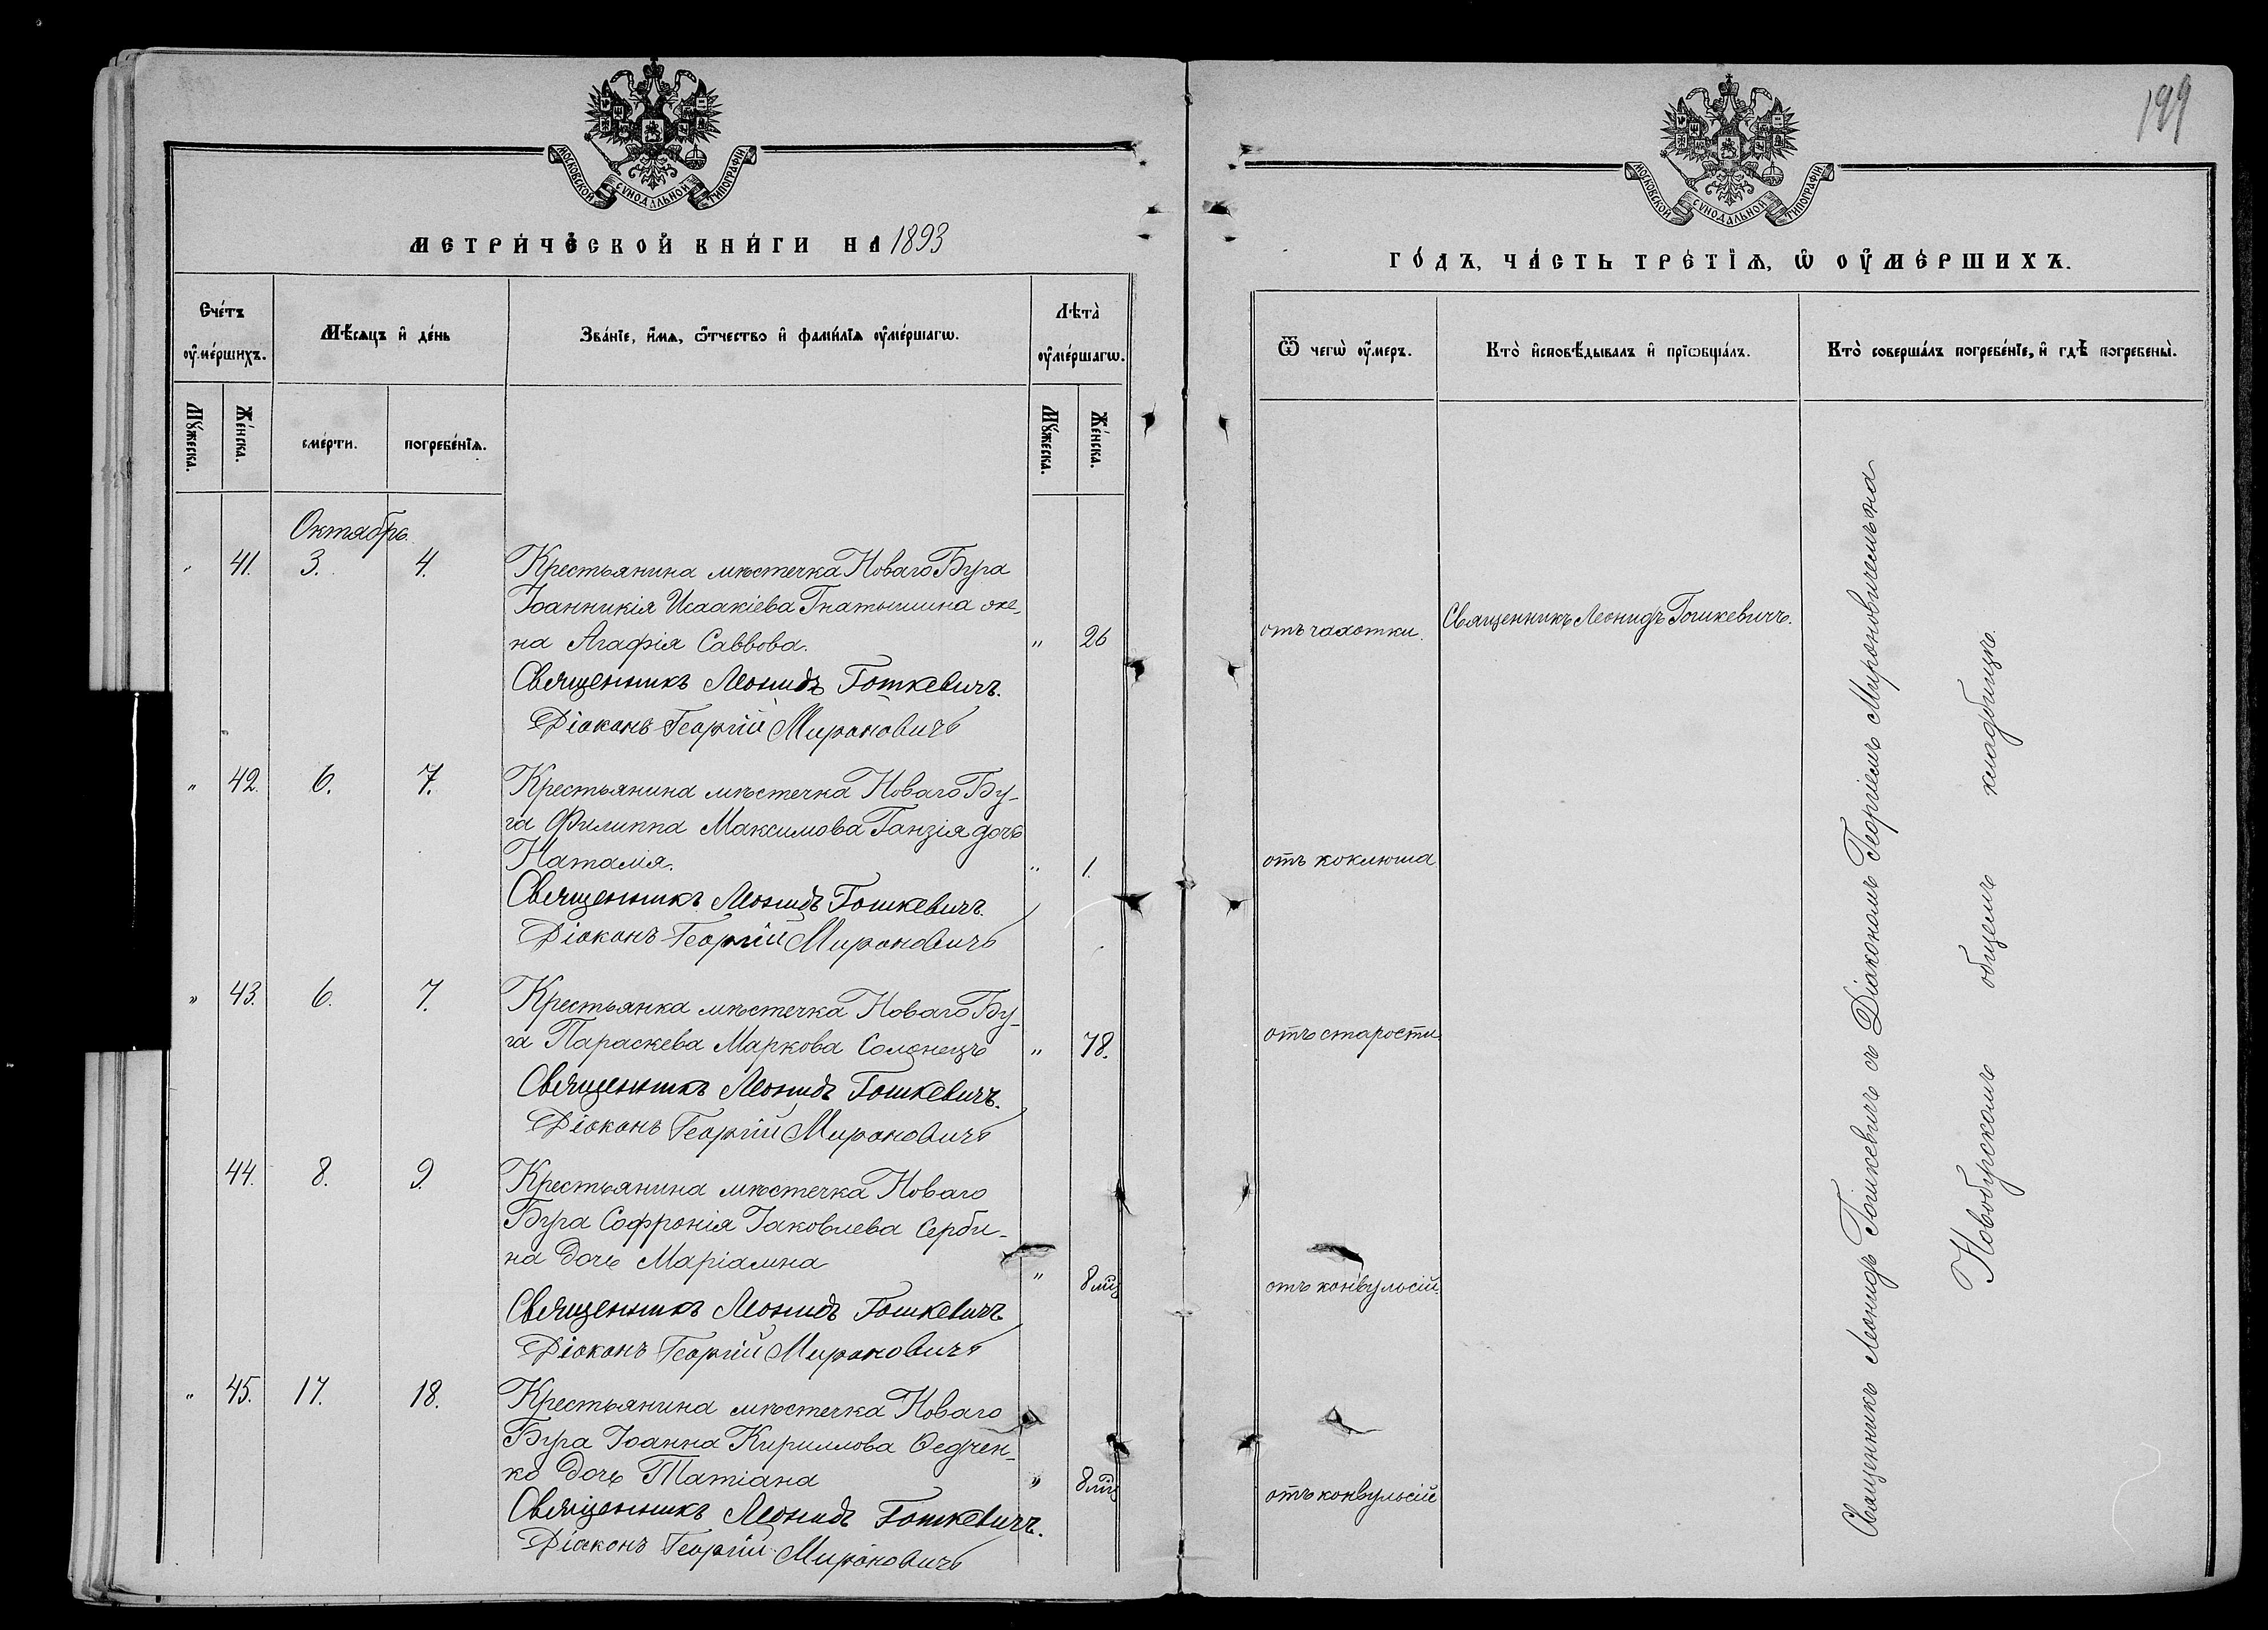 МОСКОВСКОЙ СѴНОДАЛЬНОЙ ТИПОГРАФІИ
МЕТРИ́ЧЕСКОЙ КНИ́ГИ НА 1893
Сче́тъ ᲂу҆ме́ршихъ.
Мѣ́сяцъ и҆ де́нь
Зва́нїе, и҆́мѧ, ѻ҆́тчество и҆ фами́лїѧ ᲂу҆ме́ршагѡ.
Лѣта̀ ᲂу҆ме́ршагѡ.
Мꙋ́жеска.
Же́нска.
сме́рти.
погребе́нїѧ.
Мꙋ́жеска.
Же́нска.
Октябрь.
41. 3. 4. Крестьянина мѣстечка Новаго Буга
Іоанникія Исаакіева Гнатышина же-
на Агафія Саввова. " 26
Священникъ Леонидъ Гошкевичъ.
Діаконъ Георгій Мироновичъ
" 42. 6. 7. Крестьянина мѣстечка Новаго Бу-
га Филиппа Максимова Ганзія дочь
Наталія. " 1.
Священникъ Леонидъ Гошкевичъ.
Діаконъ Георгій Мироновичъ
" 43. 6. 7. Крестьянка мѣстечка Новаго Бу-
га Параскева Маркова Солонецъ " 78.
Священникъ Леонидъ Гошкевичъ.
Діаконъ Георгій Мироновичъ
44. 8. 9. Крестьянина мѣстечка Новаго
Буга Софронія Іаковлева Серби-
на дочь Маріамна " 8 мц
Священникъ Леонидъ Гошкевичъ
Діаконъ Георгій Мироновичъ
" 45. 17. 18. Крестьянина мѣстечка Новаго
Буга Іоанна Кириллова Ѳедчен-
ко дочь Татіана " 8 мц
Священникъ Леонидъ Гошкевичъ.
Діаконъ Георгій Мироновичъ
199
МОСКОВСКОЙ СѴНОДАЛЬНОЙ ТИПОГРАФІИ
ГО́ДЪ, ЧА́СТЬ ТРЕ́ТЇѦ, Ѡ҆ ОУ҆МЕ́РШИХЪ.
Ѿ чегѡ̀ ᲂу҆́меръ.
Кто̀ и҆сповѣ́дывалъ и҆ прїѡбща́лъ.
Кто̀ соверша́лъ погребе́нїе, и҆ гдѣ̀ погребены̀.
отъ чахотки.
Священникъ Леонидъ Гошкевичъ.
отъ коклюша
отъ старости
отъ конвульсій.
отъ конвульсій
Священникъ Леонидъ Гошкевичъ съ Діакономъ Георгіемъ Мироновичемъ на
Новобугскомъ общемъ кладбищѣ